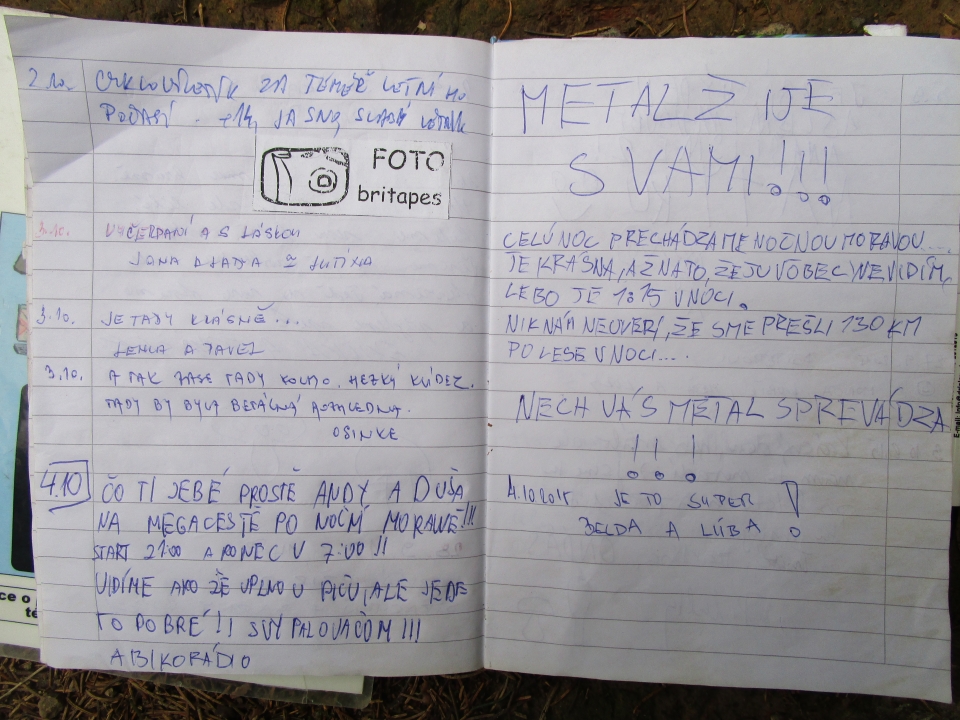 2.10. CYKLOVÝLETNÍK ZA TÉMĚŘ LETNÍHO
POČASÍ.
FOTO
britapes
3.10. VYČERPANÍ A S LÁSKOU
JANA A
3.10. JE TADY KRÁSNĚ...
LENKA A PAVEL
3.10. A TAK ZASE TADY KOLMO. HEZKÝ KLÍDEK.
TADY BY BYLA BEZVA ROZHLEDNA.
OSINKE
4.10 ČO TI JEBÉ PROSTĚ ANDY A DUŠA
NA MEGACESTĚ PO NOČNÍ MORAWĚ!!!
START 21:00 A PONEC V 7:00!!
VIDÍME AKO ŽE UPLNOU PIČU, ALE JEDE
TO DOBRÉ!! SVÝ PALOVAČOM!!!
ABIKORÁDIO
METAL ŽIJE
S VAMI!!!
CELÚ NOC PRECHÁDZAME NOČNOU MORAVOU....
JE KRÁSNA, AŽ NA TO, ŽE JU VÔBEC NEVIDÍM,
LEBO JE 1:15 V NOCI.
NIK NÁM NEOVERÍ, ŽE SME PREŠLI 130 KM
PO LESE V NOCI....
NECH VÁS METAL SPREVÁDZA
!!!
4.10.2015 JE TO SUPER!
ZELDA A LIBA